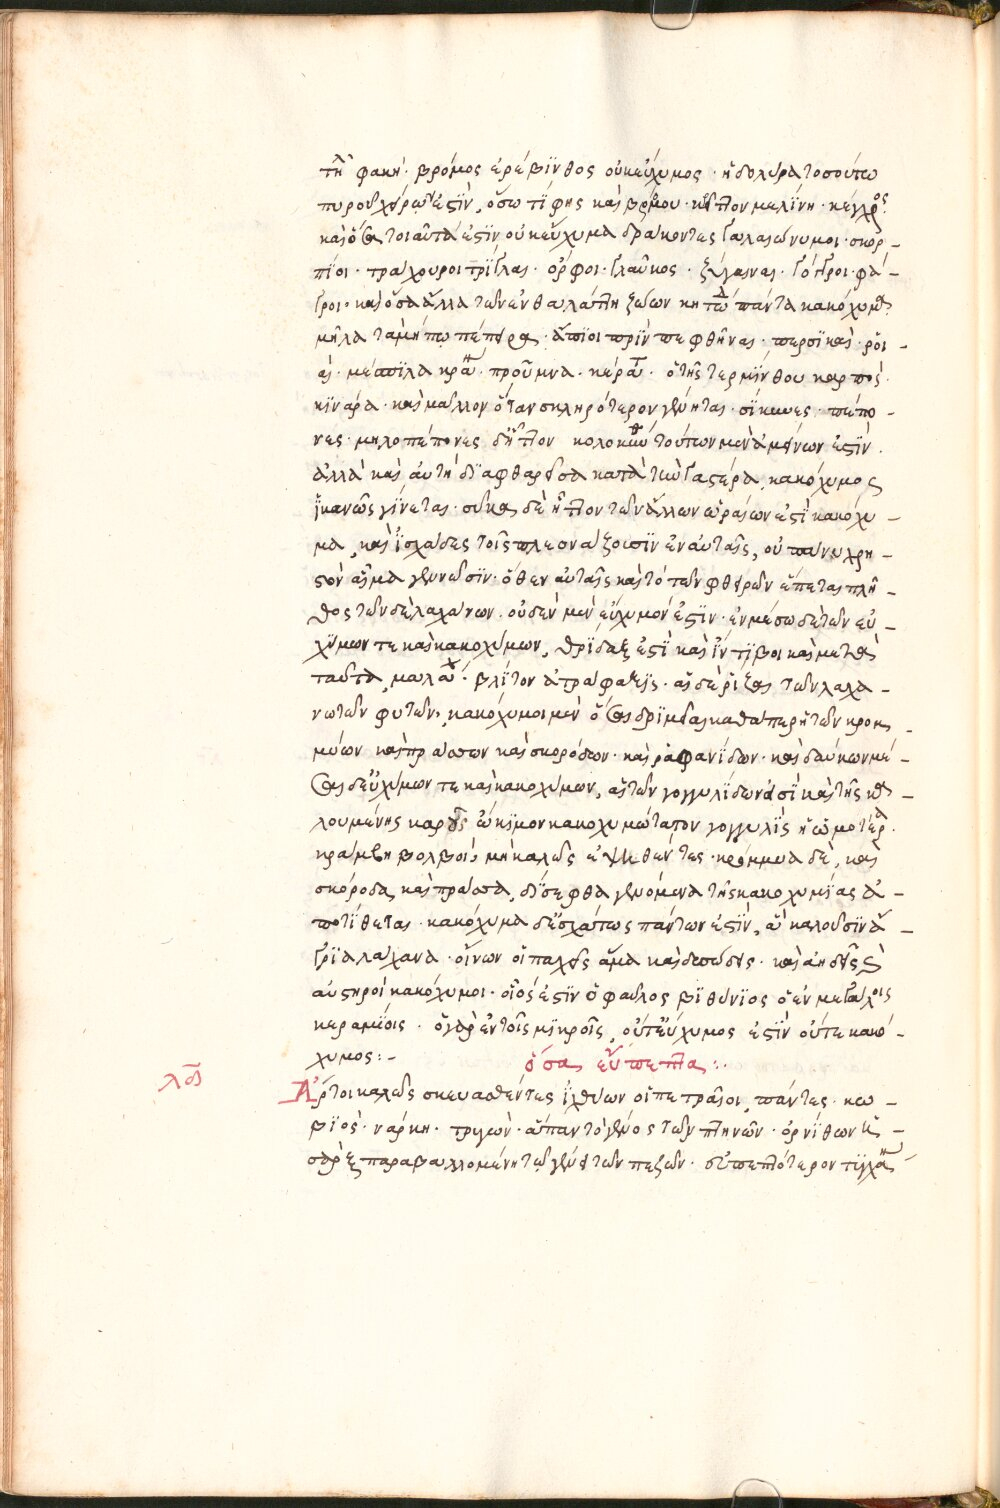 τῆλ φακή· βρόμος ἐρέβϊνθος οὐκ εὔχυμος· ἡ δ ὄλυρα τοσούτω
πυροῦ χείρων ἐστὶν, ὅσω τίφης καὶ βρόμου· κέγχρος
καὶ ὅσα τοιαῦτά ἐστιν οὐκ εὔχυμα δράκοντες γαλαιώνυμοι· σκορ-
πίοι· τράχουροι τρίγλαι· ὀρφοι· γλαῦκος· ζύγαιναι· γόγγροι· φά-
γροι· καὶ ὅσα ἄλλα τῶν ἐν θαλάττῃ ζώων κητώδη πάντα κακόχυμα
μῆλα τὰ μήπω πέπειρα· ἄπιοι πρὶν πεφθῆναι· περσϊκαὶ· ῥοι-
αί· μέσπϊλα κράν· προῦμνα· κεράτ· ὁ τῆς τερμίνθου καρπός·
κϊνάρα· καὶ μᾶλλον ὅταν σκληρότερον γένηται· σίκυες· πέπο-
νες· μηλοπέπονες δ ἧττον κολοκυνθ τούτων μὲν ἀμείνων ἐστὶν·
ἀλλὰ καὶ αὐτὴ δϊαφθαρεῖσα κατὰ τὴν γαστέρα, κακόχυμος
ἱκανῶς γίνεται· σῦκα δὲ ἧττον τῶν ἄλλων ὡραίων ἐστὶ κακόχυ-
μα, καὶ ἰσχάδες τοῖς πλεονάζουσϊν ἐν αὐταῖς, οὐ πάνυ χρη-
στὸν αἷμα γεννῶσϊν· ὅθεν αὐταῖς καὶ τὸ τῶν φθειρῶν ἕπεται πλῆ-
θος τῶν δὲ λαχάνων· οὐδὲν μὲν εὔχυμόν ἐστϊν· ἐν μέσω δὲ τῶν εὐ-
χύμων τε καὶ κακοχύμων, θρίδαξ ἐστὶ καὶ ἴντϊβοι καὶ μετὰ
ταῦτα, μαλάχ· βλίτον ἀτράφαξϊς· αἱ δὲ ῥίζαι τῶν λαχα-
νωτῶν φυτῶν, κακόχυμοι μὲν ὅσαι δρϊμεῖαι καθάπερ ἡ τῶν κρομ
μύων καὶ πράσσων καὶ σκορόδων· καὶ ῥαφανίδων· καὶ δαύκων μέ-
σαι δ εὐχύμων τε καὶ κακοχύμων, αἱ τῶν γογγυλίδων εἰσὶ καὶ τῆς κα-
λουμένης καρ ὤκιμον κακοχυμώτατον γογγυλὶς ἡ ὠμοτέρα·
κράμβη βολβοὶ, μὴ καλῶς ἐψηθέντες· κρόμμυα δὲ, καὶ
σκόροδα, καὶ πράσα, δὶς ἑφθὰ γενόμενα τῆς κακοχυμίας ἀ-
ποτίθεται· κακόχυμα δ ἐσχάτως πάντων ἐστὶν, ἃ καλοῦσϊν ἄ-
γρϊα λάχανα· οἴνων οἱ παχεῖς ἅμα καὶ δυσώδεις· καὶ ἀηδεῖς καὶ
αὐστηροὶ κακόχυμοι· οἷος ἐστὶν ὁ φαῦλος βϊθυνϊος ὁ ἐν μεγάλοις
κεραμίοις· ὁ γὰρ ἐν τοῖς μϊκροῖς, οὔτ εὔχυμος ἐστὶν οὔτε κακό-
χυμος:-
ὅσα εὔπεπτα:·
λδ
Ἄρτοι καλῶς σκευασθέντες ἰχθύων οἱ πετραῖοι, πάντες· κω-
βϊός· νάρκη· τρυγών· ἅπαν τὸ γένος τῶν πτηνῶν· ὀρνίθων ἡ-
σὰρξ παραβαλλομένη τῷ γένει τῶν πεζῶν· εὐπεπτότερον τυγχάν